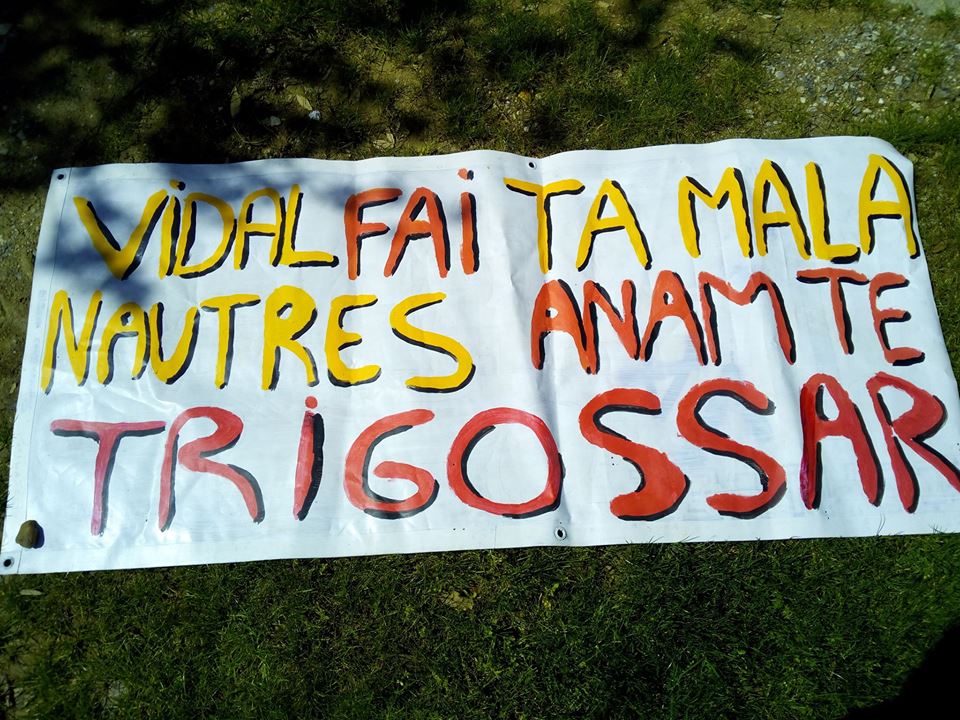 VIDAL FAI TA MALA
NAUTRES ANAM TE
TRIGOSSAR